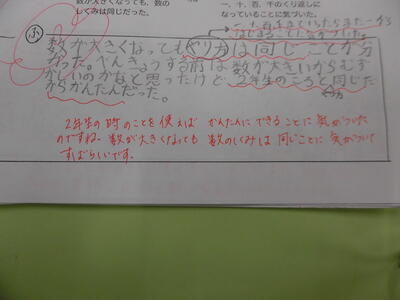 数が大きくなっても、数の
しくみは同じだった。
一、十、百、千のくり返しに
なっていることに気づいた。
ふ
数が大きくなってもくり方は同じことが分
かった。べんきょうする前は数が大きいからむず
かしいのかなと思ったけど、2年生のころと同じだ
からかんたんだった。
2年生の時のことを使えば かんたんにできることに気がついた
のですね。数が大きくなっても 数のしくみは 同じことに 気がついて
すばらしいです。